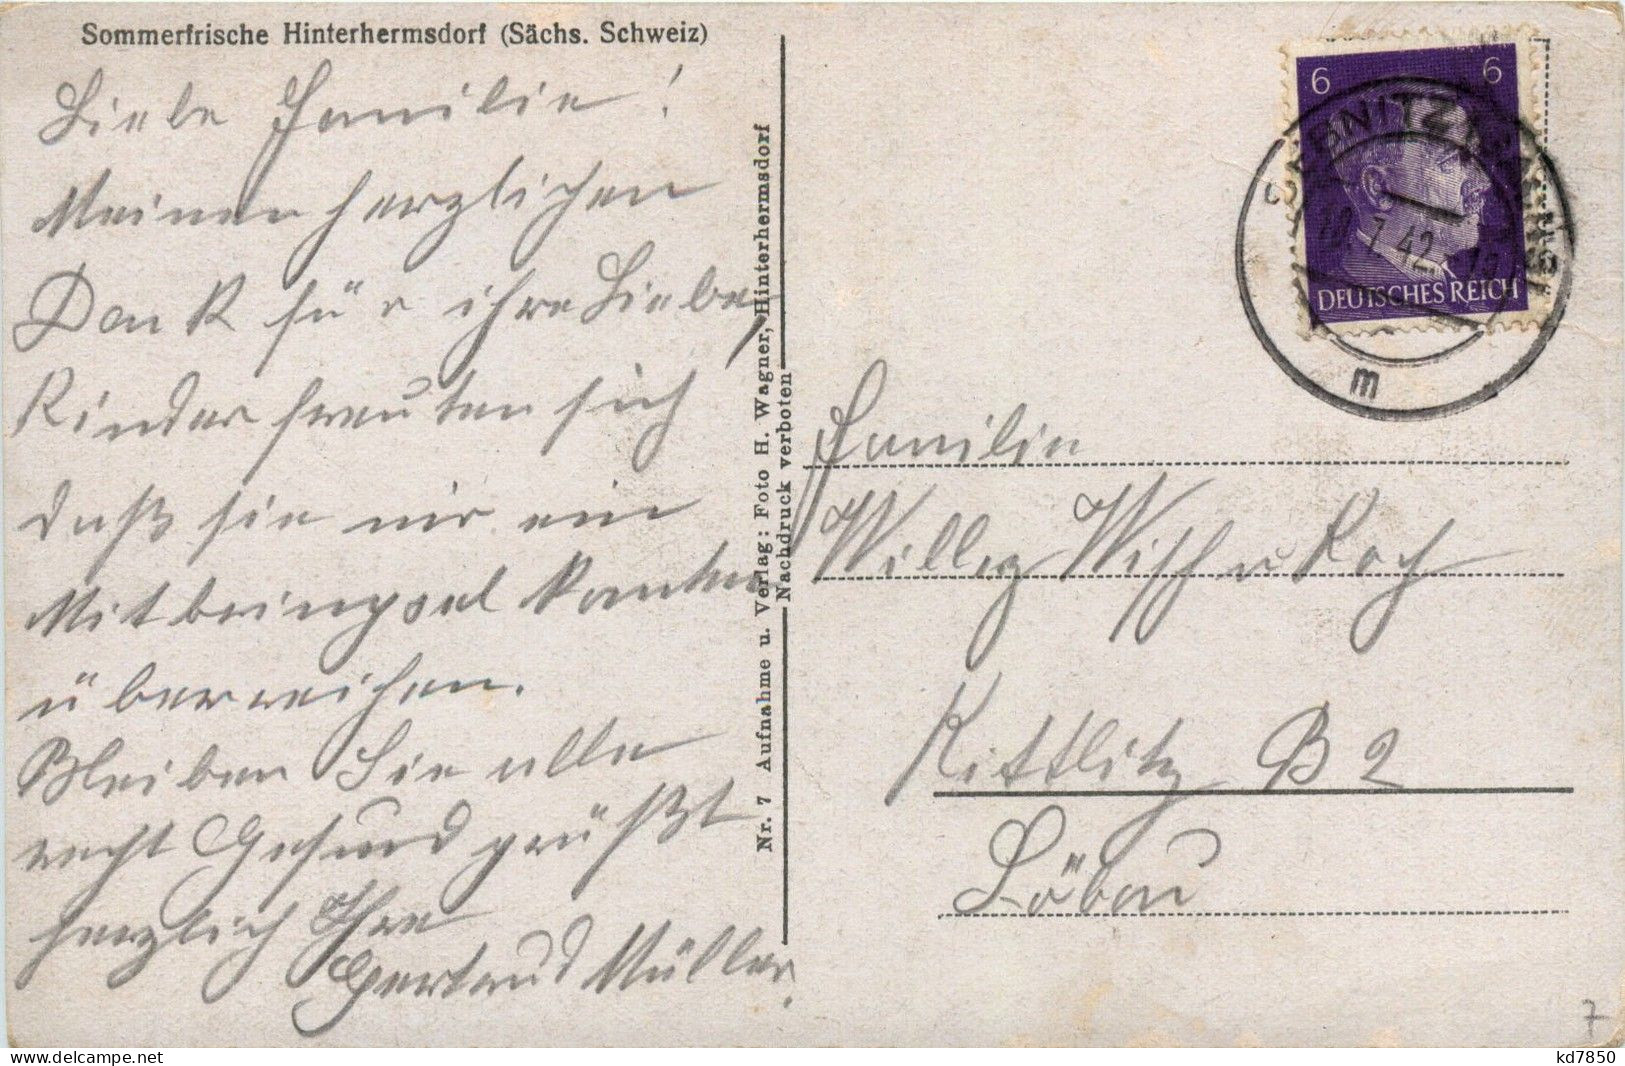 Sommerfrische Hinterhermsdorf (Sächs. Schweiz)
Liebe Familie!
Meinen herzlichen
Dank für ihre Liebe,
Kinder freuten sich
daß sie mir ein
Mitbringsel konnten
überreichen.
Bleiben Sie alle
recht Gesund grüßt
herzlich Ihre
Gertraud Müller.
Nr. 7 Aufnahme u. Verlag: Foto H. Wagner, Hinterhermsdorf
Nachdruck verboten
6 6
DEUTSCHES REICH
SEBNITZ
10.7.42
m
Familie
Willy u Koch
Kittlitz B 2
Löbau
7
delcampe.net
kd7850